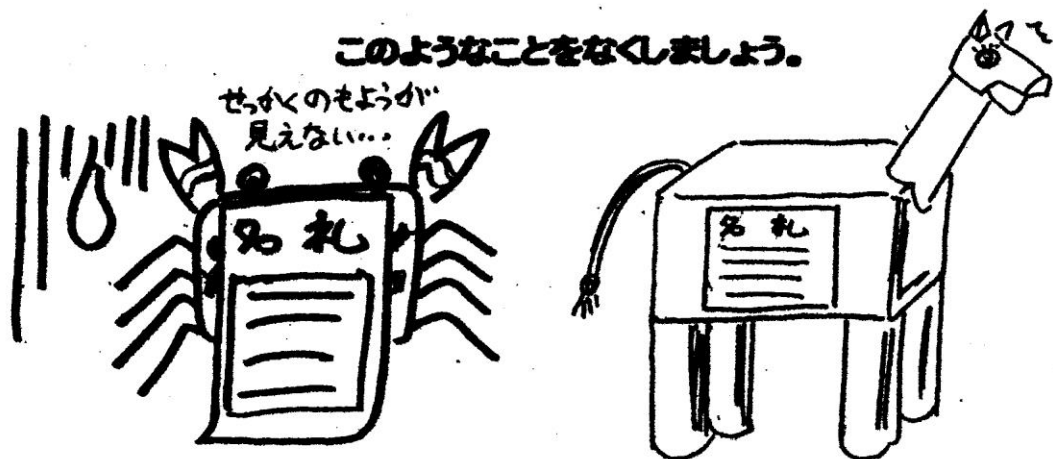 このようなことをなくしましょう。
せっかくのもようが
見えない…
名札
名札